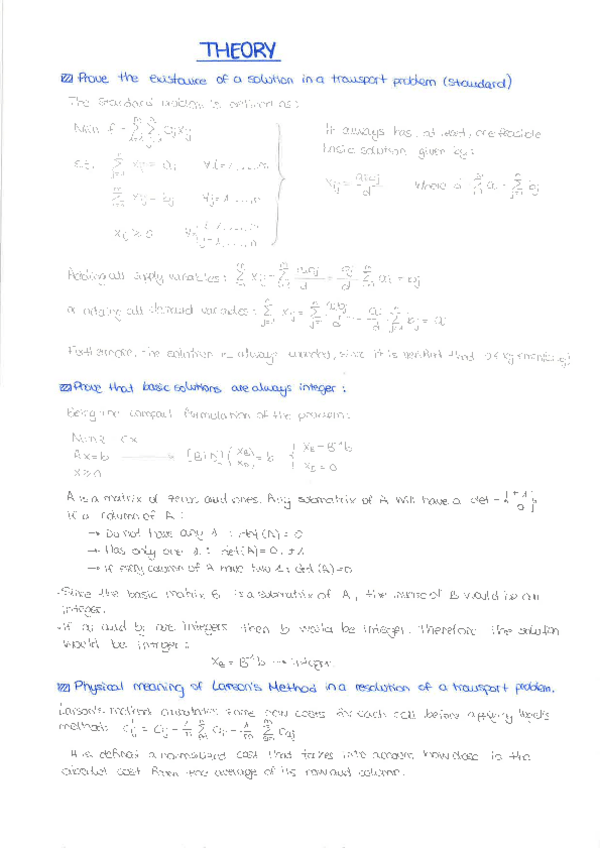 THEORY
Prove the existance of a solution in a transport problem (standard)
The standard problem is defined as:
Min f = Σ Σ cij xij
It always has, at least, one feasible
s.t. Σ xij = ai ∀i = 1 ..... m
basic solution given by:
Σ xij = bj ∀j = 1 ..... n
xij = aibj/d where d = Σ ai = Σ bj
xij ≥ 0
Adding all supply variables: Σ xij = Σ aibj/d = bj/d Σ ai = bj
adding all demand variables: Σ xij = Σ aibj/d = ai/d Σ bj = ai
Furthermore, the solution is always bounded, since it is verified that
Prove that basic solutions are always integer:
Being the compact formulation of the problem:
Min z cx
Ax=b → (B|N) (xB xN) = b { xB = B⁻¹b
x≥0 = 0
A is a matrix of zeros and ones. Any submatrix of A will have a det =
If a column of A:
→ Do not have any 1: det(A) = 0
→ Has only one 1: det(A) = 0, ±1
→ If every column of A have two 1: det(A)=0
- Since the basic matrix B is a submatrix of A, the of B would be an
integer.
- If ai and bj are integers then b would be integer. Therefore the solution
would be integer:
xB = B⁻¹b → integer.
Physical meaning of Larson's Method in a resolution of a transport problem.
Larson's method calculates some new costs for each cell before applying
method:
It is defined a normalized cost that takes into account how close is the
cost from the average of its row and column.